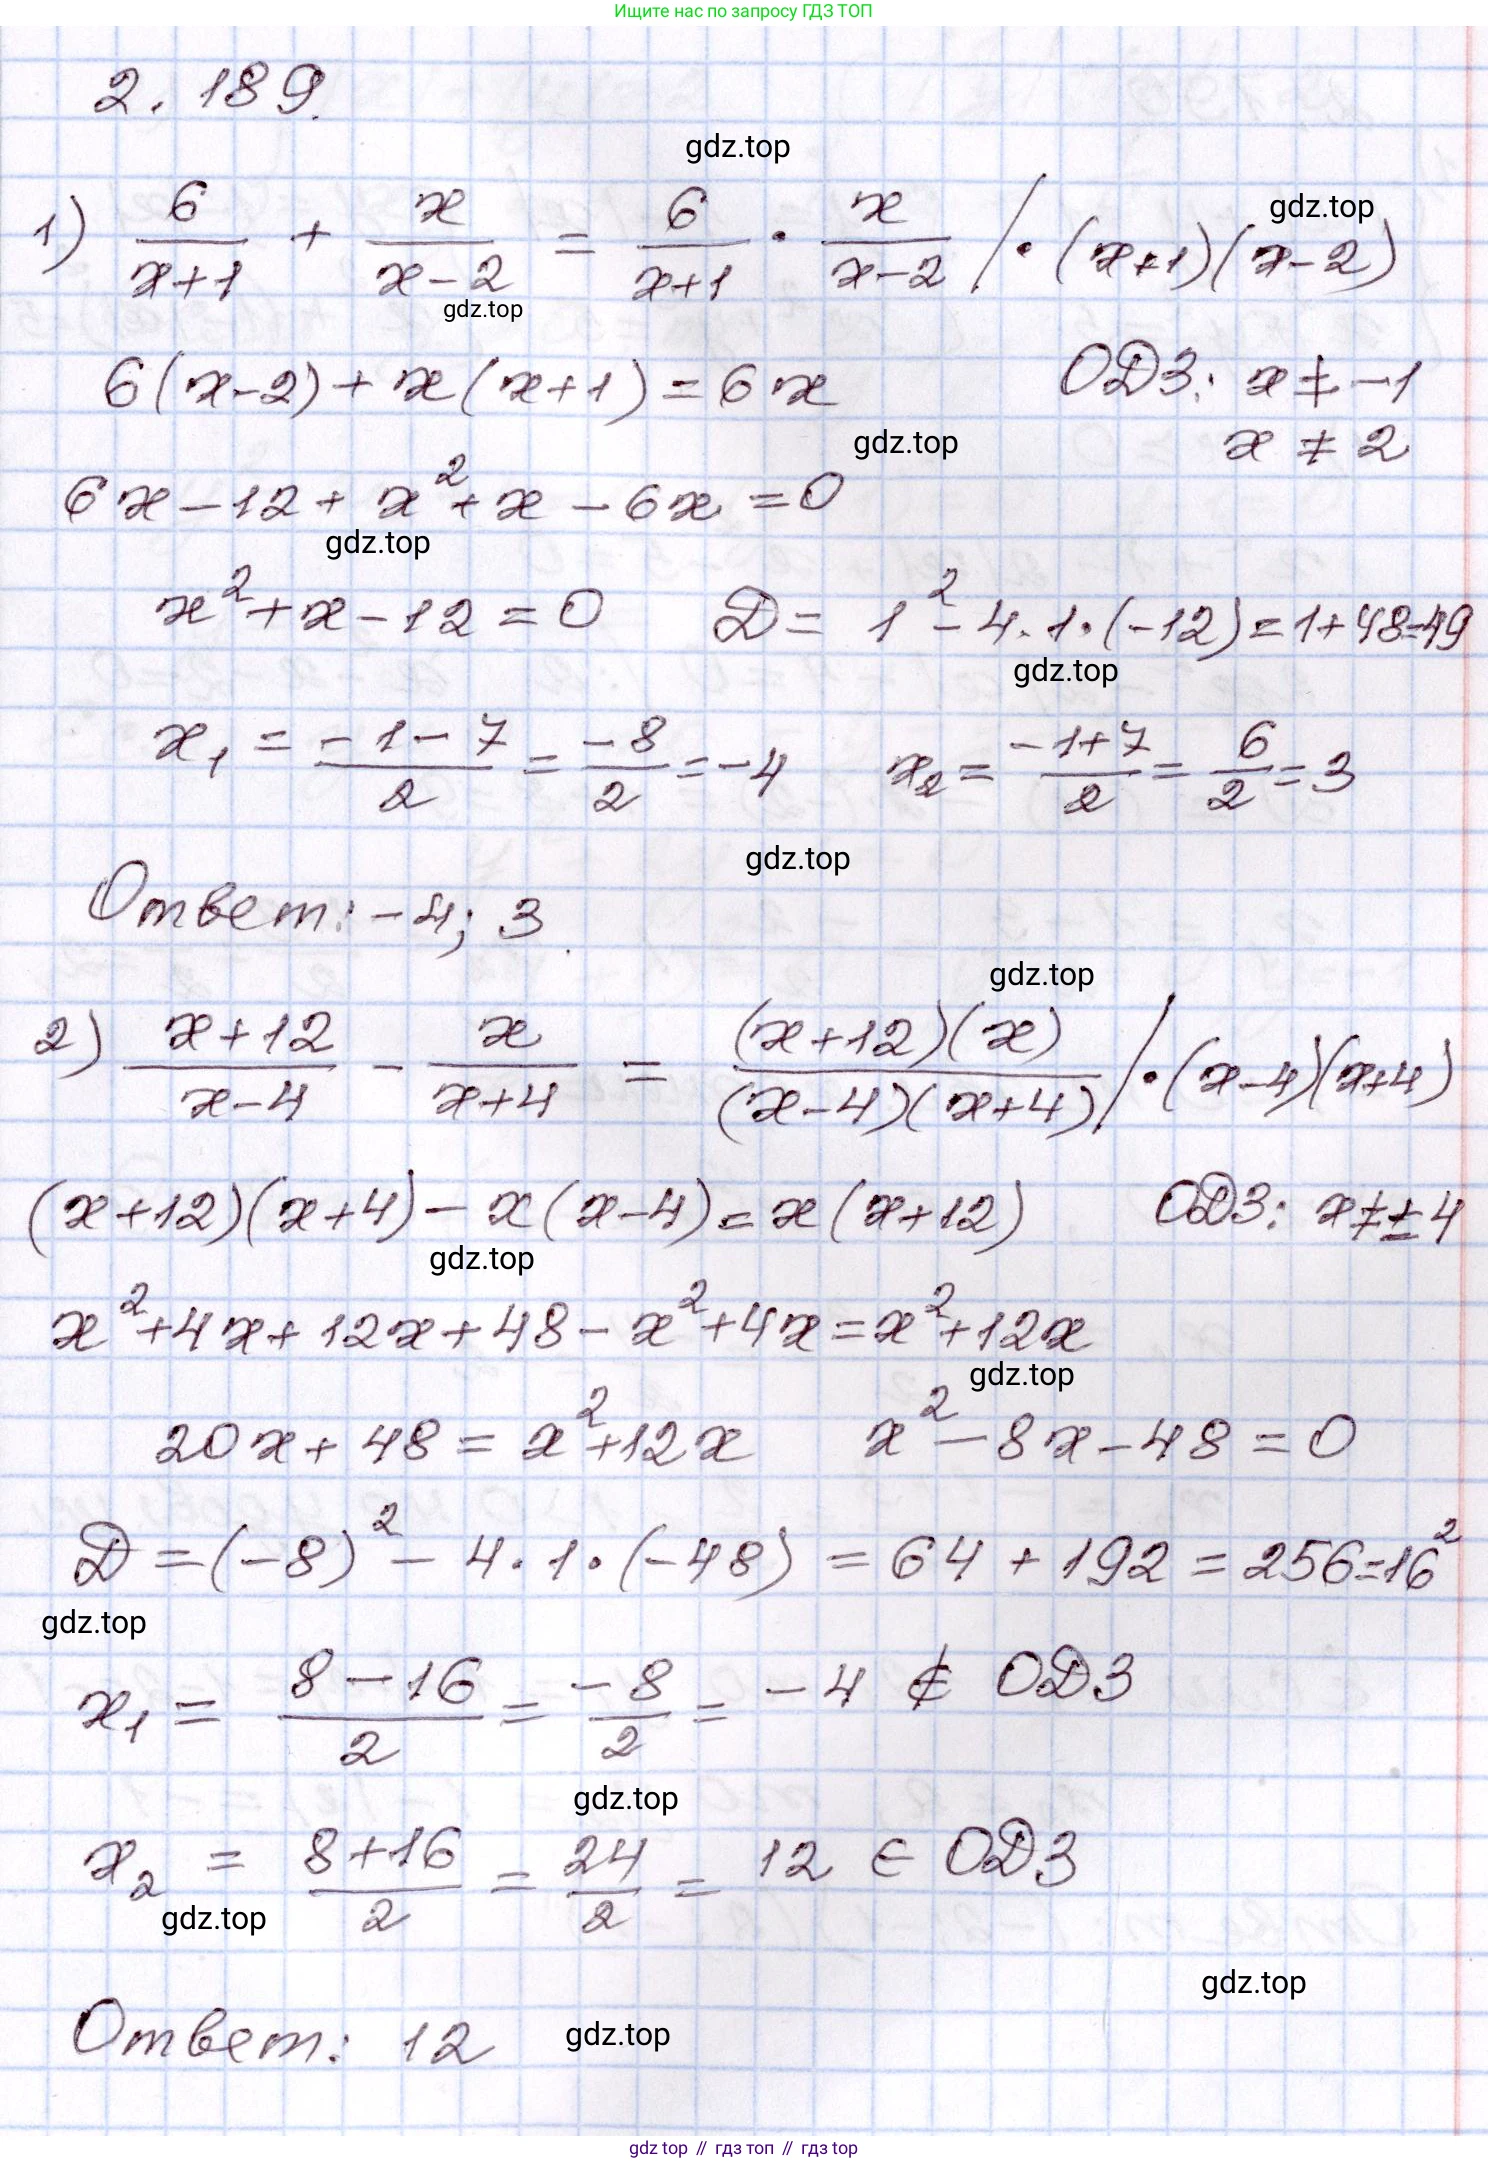 Ищите нас по запросу ГДЗ ТОП
2.189.
gdz.top
1) 6/(x+1) + x/(x-2) = 6/(x+1) · x/(x-2) / · (x+1)(x-2)
gdz.top
gdz.top
6(x-2) + x(x+1) = 6x ОДЗ: x ≠ -1
gdz.top
x ≠ 2
6x - 12 + x² + x - 6x = 0
gdz.top
x² + x - 12 = 0 Д = 1² - 4·1·(-12) = 1 + 48 = 49
gdz.top
x₁ = (-1-7)/2 = -8/2 = -4 x₂ = (-1+7)/2 = 6/2 = 3
gdz.top
Ответ: -4; 3.
gdz.top
2) (x+12)/(x-4) - x/(x+4) = (x+12)(x)/((x-4)(x+4)) / · (x-4)(x+4)
(x+12)(x+4) - x(x-4) = x(x+12) ОДЗ: x ≠ ±4
gdz.top
x² + 4x + 12x + 48 - x² + 4x = x² + 12x
gdz.top
20x + 48 = x² + 12x x² - 8x - 48 = 0
Д = (-8)² - 4·1·(-48) = 64 + 192 = 256 = 16²
gdz.top
x₁ = (8-16)/2 = -8/2 = -4 ∉ ОДЗ
gdz.top
x₂ = (8+16)/2 = 24/2 = 12 ∈ ОДЗ
gdz.top
gdz.top
Ответ: 12
gdz.top
gdz top // гдз топ // gdz top